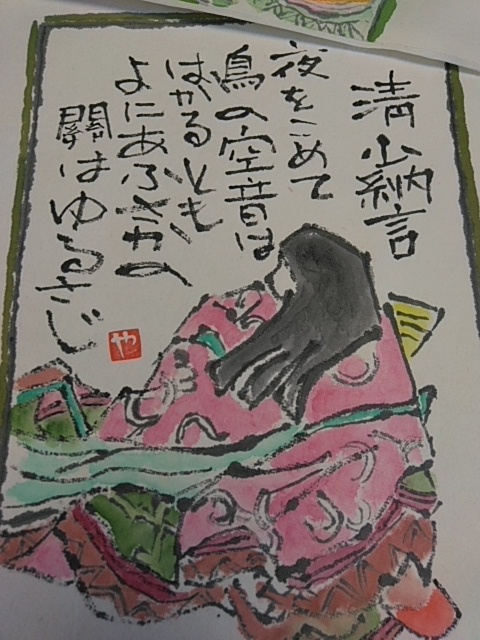 清少納言
夜をこめて
鳥の空音は
はかるとも
よにあふさかの
関はゆるさじ
や